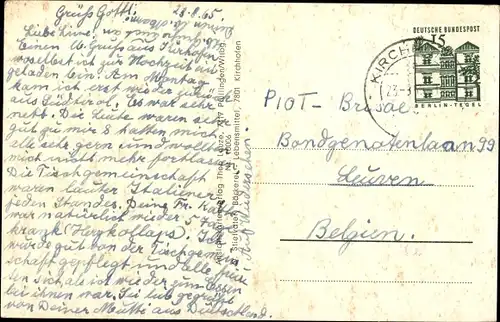 Grüß Gott! 23.8.65.
Liebe Live!
Einen lb. Gruß aus Kirchhofen
woselbst ich zur Hochzeit ein-
geladen bin. Am Montag
kam ich erst wieder zurück
aus Südtirol. Es war sehr
nett. Die Leute waren sehr
gut zu mir &
alle sehr gern und wollten
mich nicht mehr fortlassen.
Die Tischgemeinschaft
waren lauter Italiener
jeden Standes. Deine Fr.
war natürlich wieder 5 Tage
krank (Herzkollaps). Ich
wurde gut von der Tischgemein-
schaft gepflegt und alle freu-
ten sich als ich wieder zum Essen
bei ihnen war. Sei lieb gegrüßt
von Deiner Mutti aus Deutschland.
Auf Wiedersehen!
Stiel (vorm.) Bäckerei u. Lebensmittel, 7801 Kirchhofen
DEUTSCHE BUNDESPOST
15
BERLIN-TEGEL
KIRCHH
23.-8
PIOT-
Bondgenotenlaan 99
Leuven
Belgien.